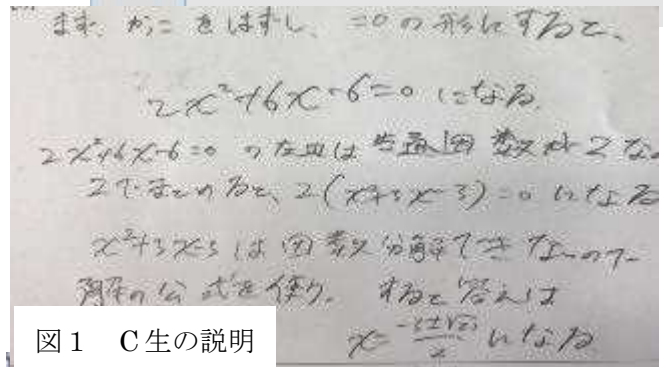 まず、かっこをはずし、=0の形にすると、
2x²+6x-6=0 になる。
2x²+6x-6=0 の左辺は共通因数が2な
2でまとめると、2(x²+3x-3)=0 になる
x²+3x-3は因数分解できないので
解の公式を使う。すると答えは
x=\frac{-3±√21}{2} になる
図1 C生の説明